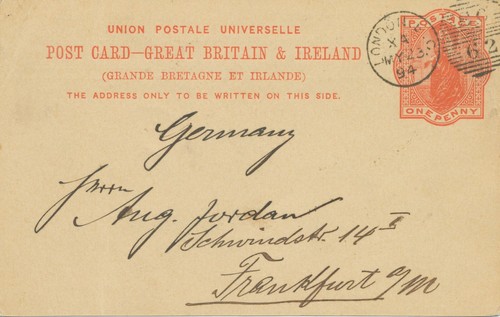 UNION POSTALE UNIVERSELLE
POST CARD—GREAT BRITAIN & IRELAND
(GRANDE BRETAGNE ET IRLANDE)
THE ADDRESS ONLY TO BE WRITTEN ON THIS SIDE.
LONDON
X4
MY23
94
62
ONE PENNY
Germany
Herrn
Aug. Jordan
Schwindstr. 14 I
Frankfurt a/M